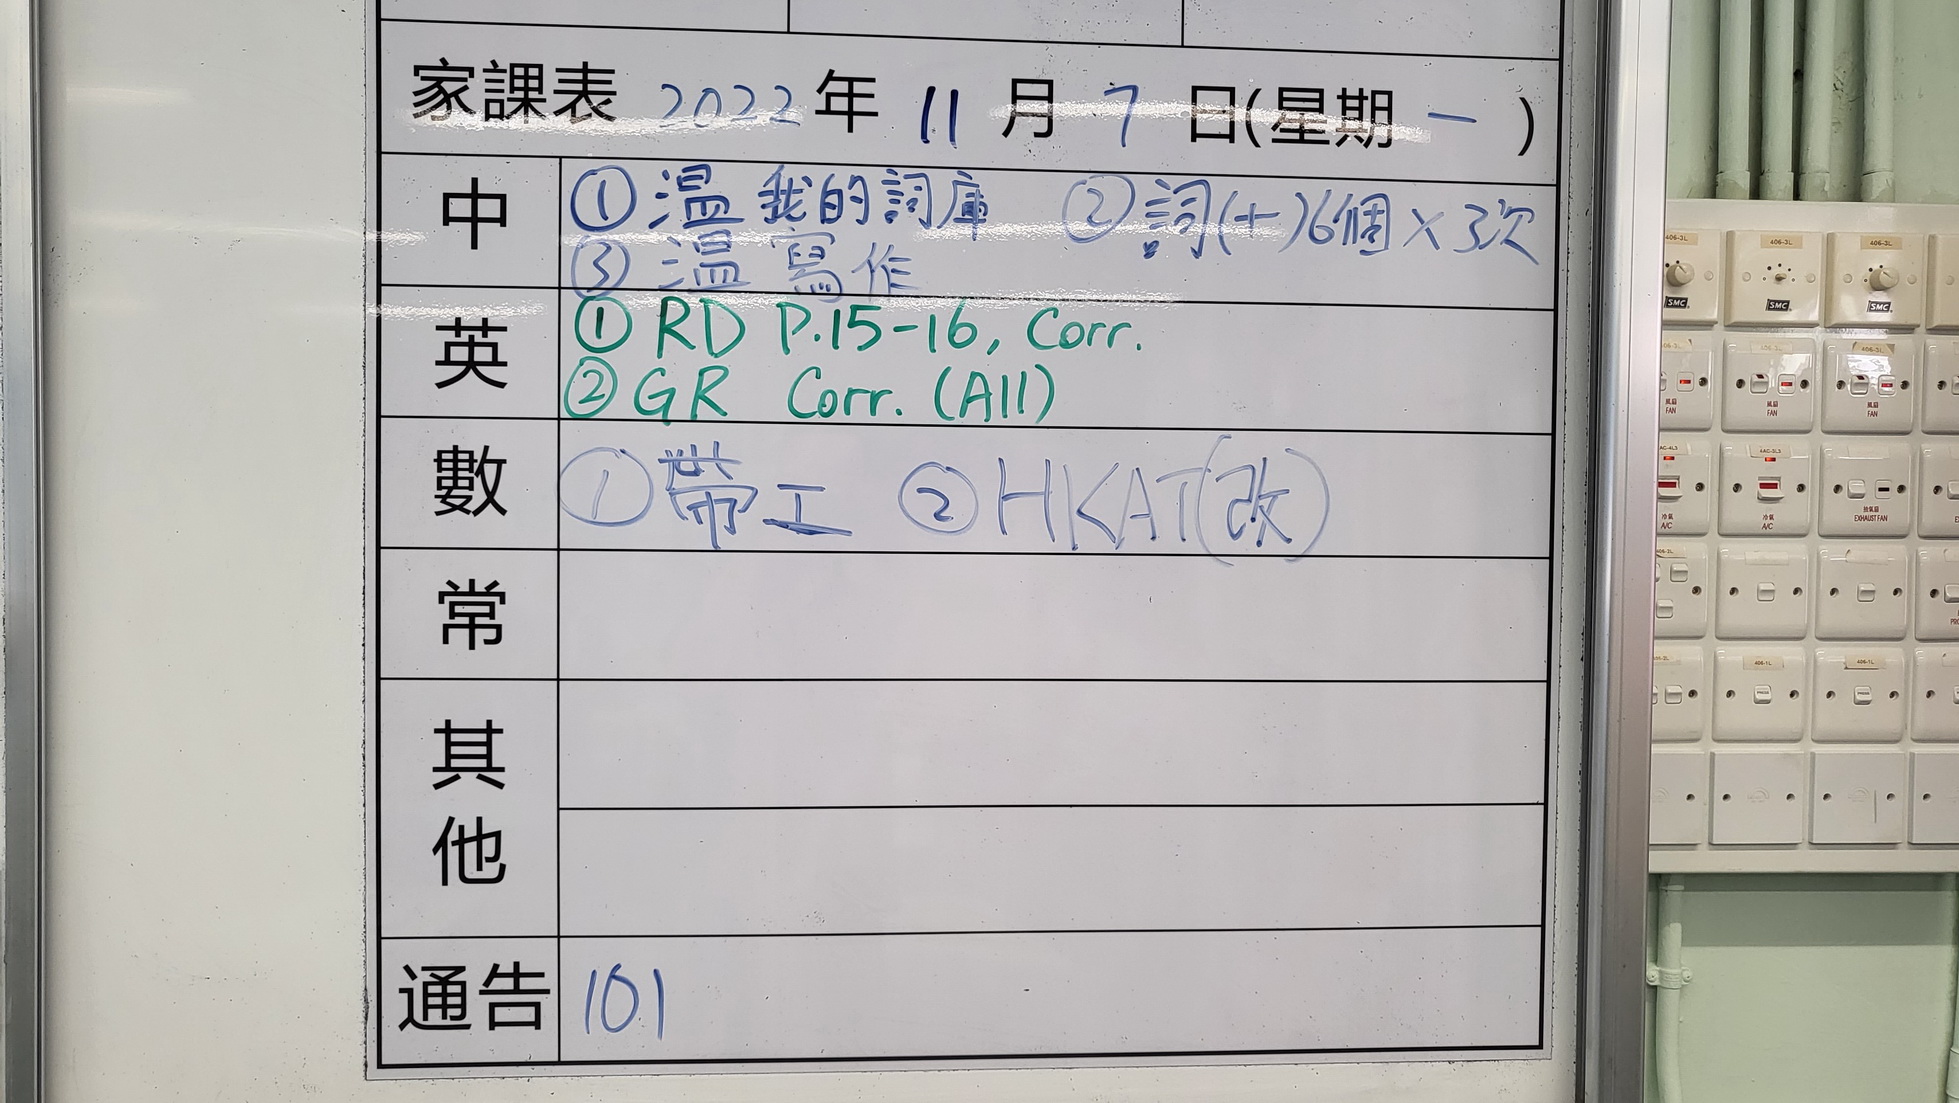 家課表 2022 年 11 月 7 日(星期 一 )
中 ①溫 我的詞庫 ②詞(十)6個×3次
③溫 寫作
英 ① RD P.15-16, Corr.
② GR Corr. (All)
數 ①帶工 ②HKAT(改)
常
其他
通告 101
406-3L 406-3L 406-3L
SMC SMC SMC
406-3L 406-3L
風扇 風扇 風扇
FAN FAN FAN
4AC-3L3
冷氣 冷氣 抽氣扇
A/C A/C EXHAUST FAN
406-1L 406-1L
PRESS PRESS